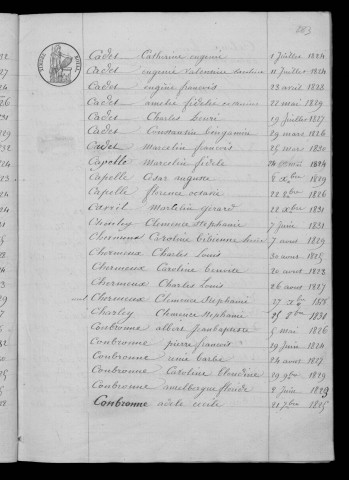 Cadet Catherine eugenie 1 Juillet 1824
Cadet eugenie Valentine 11 Juillet 1824
Cadet eugène françois 23 avril 1828
Cadet amelie fidelis 21 mai 1829
Cadet Charles henri 19 Juillet 1827
Cadet Constantin benjamin 29 mars 1826
Cadet Marcelin françois 25 mars 1830
Capelle Marcelin fidele 1824
Capelle Cesar auguste 2 Xbre 1829
Capelle florence octavie 22 1826
Martelin gerard 22 Xbre 1831
Clemence Stephanie 7 Juin 1831
Chermeux Caroline bibienne 7 avril 1829
Chermeux Charles Louis 30 avril 1825
Chermeux Caroline benoite 20 avril 1822
Chermeux Charles Louis 26 avril 1827
Chermeux Clemence Stephanie 27 Xbre
Charley Clemence Stephanie 25 8bre 1831
Conbronne albert Jean baptiste 5 mai 1826
Conbronne pierre françois 19 Juin 1824
Conbronne barbe 24 1827
Conbronne Caroline blondine 29 9bre 1829
Conbronne amelbergue 2 Juin 1823
Conbronne adele cecile 21 7bre 1825